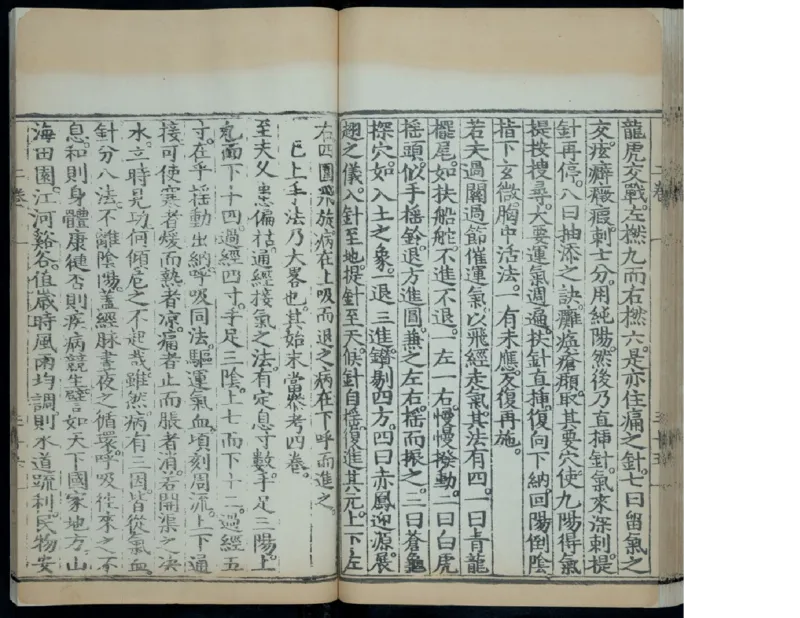 龍虎交戰。左撚九而右撚六。是亦住痛之針。七曰留氣之
交。痃癖癥瘕。刺七分。用純陽。然後乃直插針。氣來深刺。提
針再停。八曰抽添之訣。癱瘓瘡癩。取其要穴。使九陽得氣
提按搜尋。大要運氣週遍。扶針直插。復向下納。回陽倒陰
指下玄微。胸中活法。一有未應。反復再施。
若夫過關過節催運氣。以飛經走氣。其法有四。一曰青龍
擺尾。如扶船舵。不進不退。一左一右。慢慢撥動。二曰白虎
搖頭。似手搖鈴。退方進圓。兼之左右。搖而振之。三曰蒼龜
探穴。如入土之象。一退三進。鑽剔四方。四曰赤鳳迎源。展
翅之儀。入針至地。提針至天。候針自搖。復進其元。上下左
右四圍飛旋。病在上吸而退之。病在下呼而進之。
已上手法乃大畧也。其始末當參考四卷。
至夫久患偏枯。通經接氣之法。有定息寸數。手足三陽。上
九而下十四。過經四寸。手足三陰。上七而下十二。過經五
寸。在乎搖動出納。呼吸同法。驅運氣血。頃刻周流。上下通
接。可使寒者煖而熱者凉。痛者止而脹者消。若開渠之决
水。立時見功。何傾危之不起哉。雖然。病有三因。皆從氣血
針分八法。不離陰陽。蓋經脉晝夜之循環。呼吸往來之不
息。和則身體康健。否則疾病競生。譬如天下國家地方。山
海田園。江河谿谷。值歲時風雨均調。則水道疏利。民物安
二卷